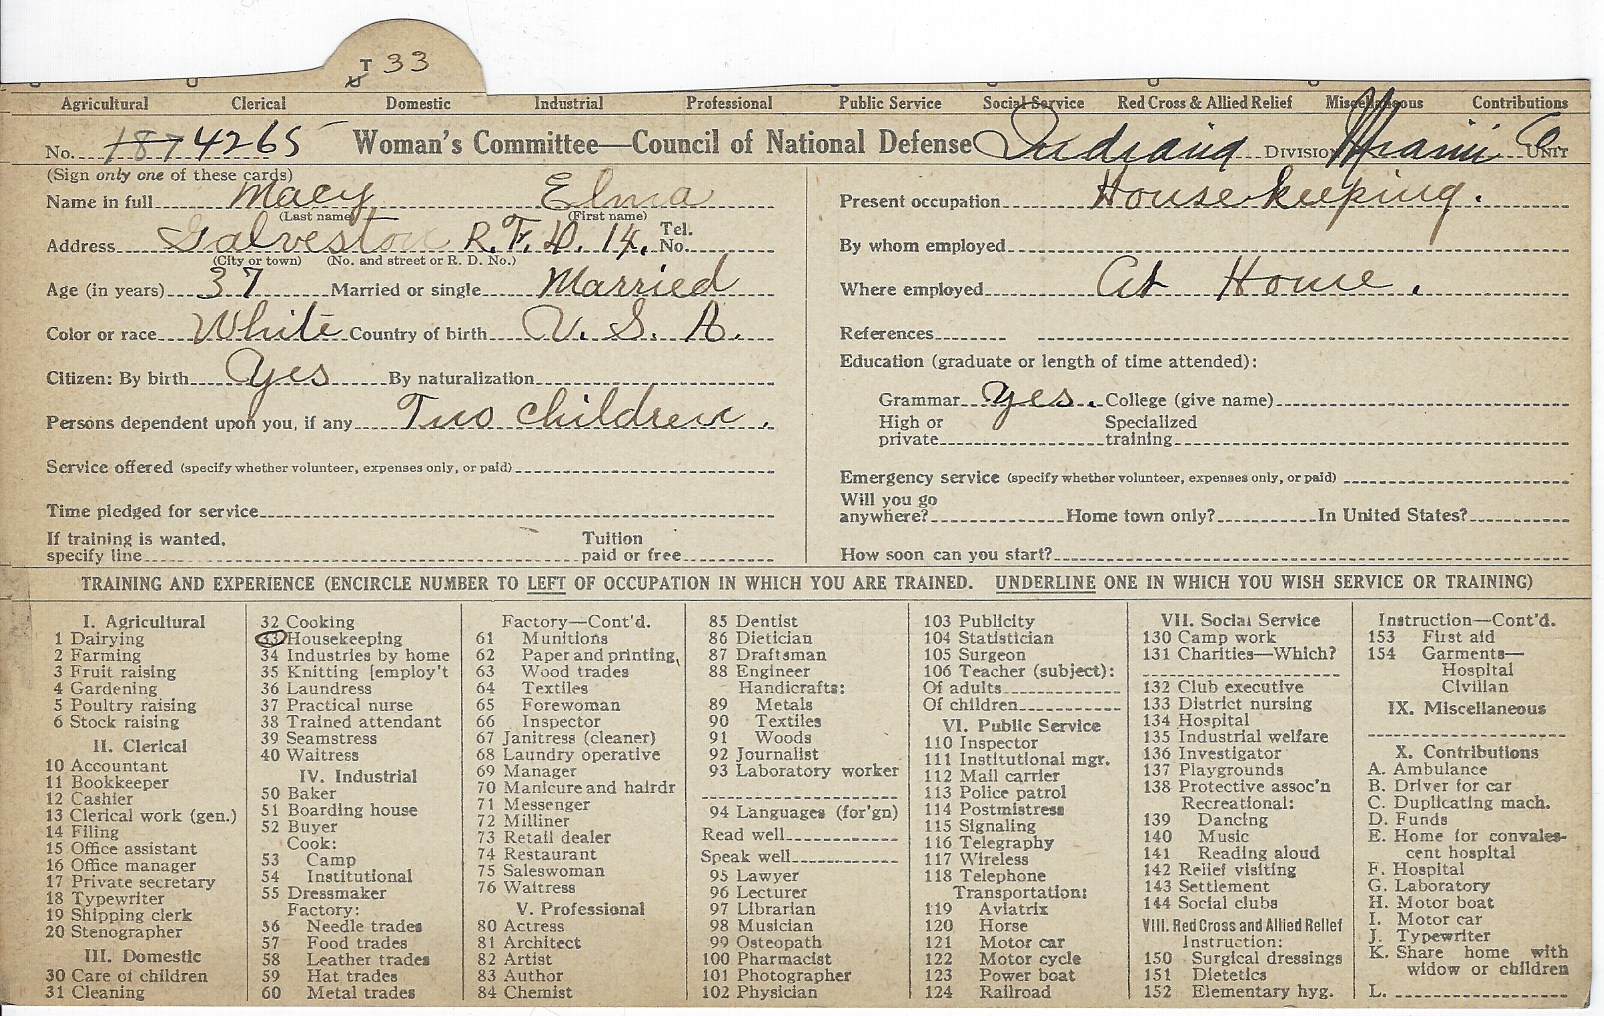 T 33
U
Agricultural Clerical Domestic Industrial Professional Public Service Social Service Red Cross & Allied Relief Miscellaneous Contributions
No. 1874265 Woman's Committee—Council of National Defense Indiana DIVISION Miami Co. UNIT
(Sign only one of these cards)
Name in full Macy Elma
(Last name) (First name)
Address Galveston R.F.D. 14. Tel. No.
(City or town) (No. and street or R. D. No.)
Age (in years) 37 Married or single Married
Color or race White Country of birth U. S. A.
Citizen: By birth Yes By naturalization
Persons dependent upon you, if any Two children.
Service offered (specify whether volunteer, expenses only, or paid)
Time pledged for service
If training is wanted, Tuition
specify line paid or free
Present occupation Housekeeping.
By whom employed
Where employed At Home.
References
Education (graduate or length of time attended):
Grammar yes. College (give name)
High or Specialized
private training
Emergency service (specify whether volunteer, expenses only, or paid)
Will you go
anywhere? Home town only? In United States?
How soon can you start?
TRAINING AND EXPERIENCE (ENCIRCLE NUMBER TO LEFT OF OCCUPATION IN WHICH YOU ARE TRAINED. UNDERLINE ONE IN WHICH YOU WISH SERVICE OR TRAINING)
I. Agricultural
1 Dairying
2 Farming
3 Fruit raising
4 Gardening
5 Poultry raising
6 Stock raising
II. Clerical
10 Accountant
11 Bookkeeper
12 Cashier
13 Clerical work (gen.)
14 Filing
15 Office assistant
16 Office manager
17 Private secretary
18 Typewriter
19 Shipping clerk
20 Stenographer
III. Domestic
30 Care of children
31 Cleaning
32 Cooking
33 Housekeeping
34 Industries by home
35 Knitting [employ't
36 Laundress
37 Practical nurse
38 Trained attendant
39 Seamstress
40 Waitress
IV. Industrial
50 Baker
51 Boarding house
52 Buyer
Cook:
53 Camp
54 Institutional
55 Dressmaker
Factory:
56 Needle trades
57 Food trades
58 Leather trades
59 Hat trades
60 Metal trades
Factory—Cont'd.
61 Munitions
62 Paper and printing
63 Wood trades
64 Textiles
65 Forewoman
66 Inspector
67 Janitress (cleaner)
68 Laundry operative
69 Manager
70 Manicure and hairdr
71 Messenger
72 Milliner
73 Retail dealer
74 Restaurant
75 Saleswoman
76 Waitress
V. Professional
80 Actress
81 Architect
82 Artist
83 Author
84 Chemist
85 Dentist
86 Dietician
87 Draftsman
88 Engineer
Handicrafts:
89 Metals
90 Textiles
91 Woods
92 Journalist
93 Laboratory worker
94 Languages (for'gn)
Read well
Speak well
95 Lawyer
96 Lecturer
97 Librarian
98 Musician
99 Osteopath
100 Pharmacist
101 Photographer
102 Physician
103 Publicity
104 Statistician
105 Surgeon
106 Teacher (subject):
Of adults
Of children
VI. Public Service
110 Inspector
111 Institutional mgr.
112 Mail carrier
113 Police patrol
114 Postmistress
115 Signaling
116 Telegraphy
117 Wireless
118 Telephone
Transportation:
119 Aviatrix
120 Horse
121 Motor car
122 Motor cycle
123 Power boat
124 Railroad
VII. Social Service
130 Camp work
131 Charities—Which?
132 Club executive
133 District nursing
134 Hospital
135 Industrial welfare
136 Investigator
137 Playgrounds
138 Protective assoc'n
Recreational:
139 Dancing
140 Music
141 Reading aloud
142 Relief visiting
143 Settlement
144 Social clubs
VIII. Red Cross and Allied Relief
Instruction:
150 Surgical dressings
151 Dietetics
152 Elementary hyg.
Instruction—Cont'd.
153 First aid
154 Garments—
Hospital
Civilian
IX. Miscellaneous
X. Contributions
A. Ambulance
B. Driver for car
C. Duplicating mach.
D. Funds
E. Home for convales-
cent hospital
F. Hospital
G. Laboratory
H. Motor boat
I. Motor car
J. Typewriter
K. Share home with
widow or children
L.